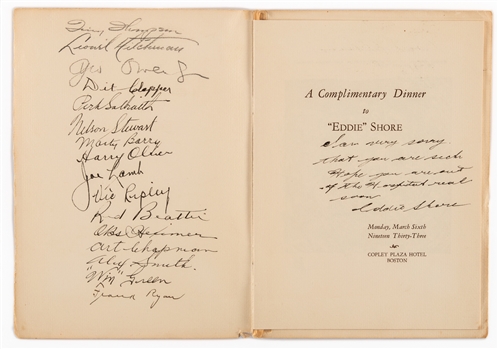 Tiny Thompson
Lionel Hitchman
Geo Owen Jr
Dit Clapper
Percy Galbraith
Nelson Stewart
Marty Barry
Harry Oliver
Joe Lamb
Vic Ripley
Red Beattie
Obs Heximer
Art Chapman
Alex Smith.
"Wm" Green
Francis Ryan
A Complimentary Dinner
to
"EDDIE" SHORE
I am very sorry
that you are sick
Hope you are out
of the Hospital real
soon
Eddie Shore
Monday, March Sixth
Nineteen Thirty-Three
COPLEY PLAZA HOTEL
BOSTON